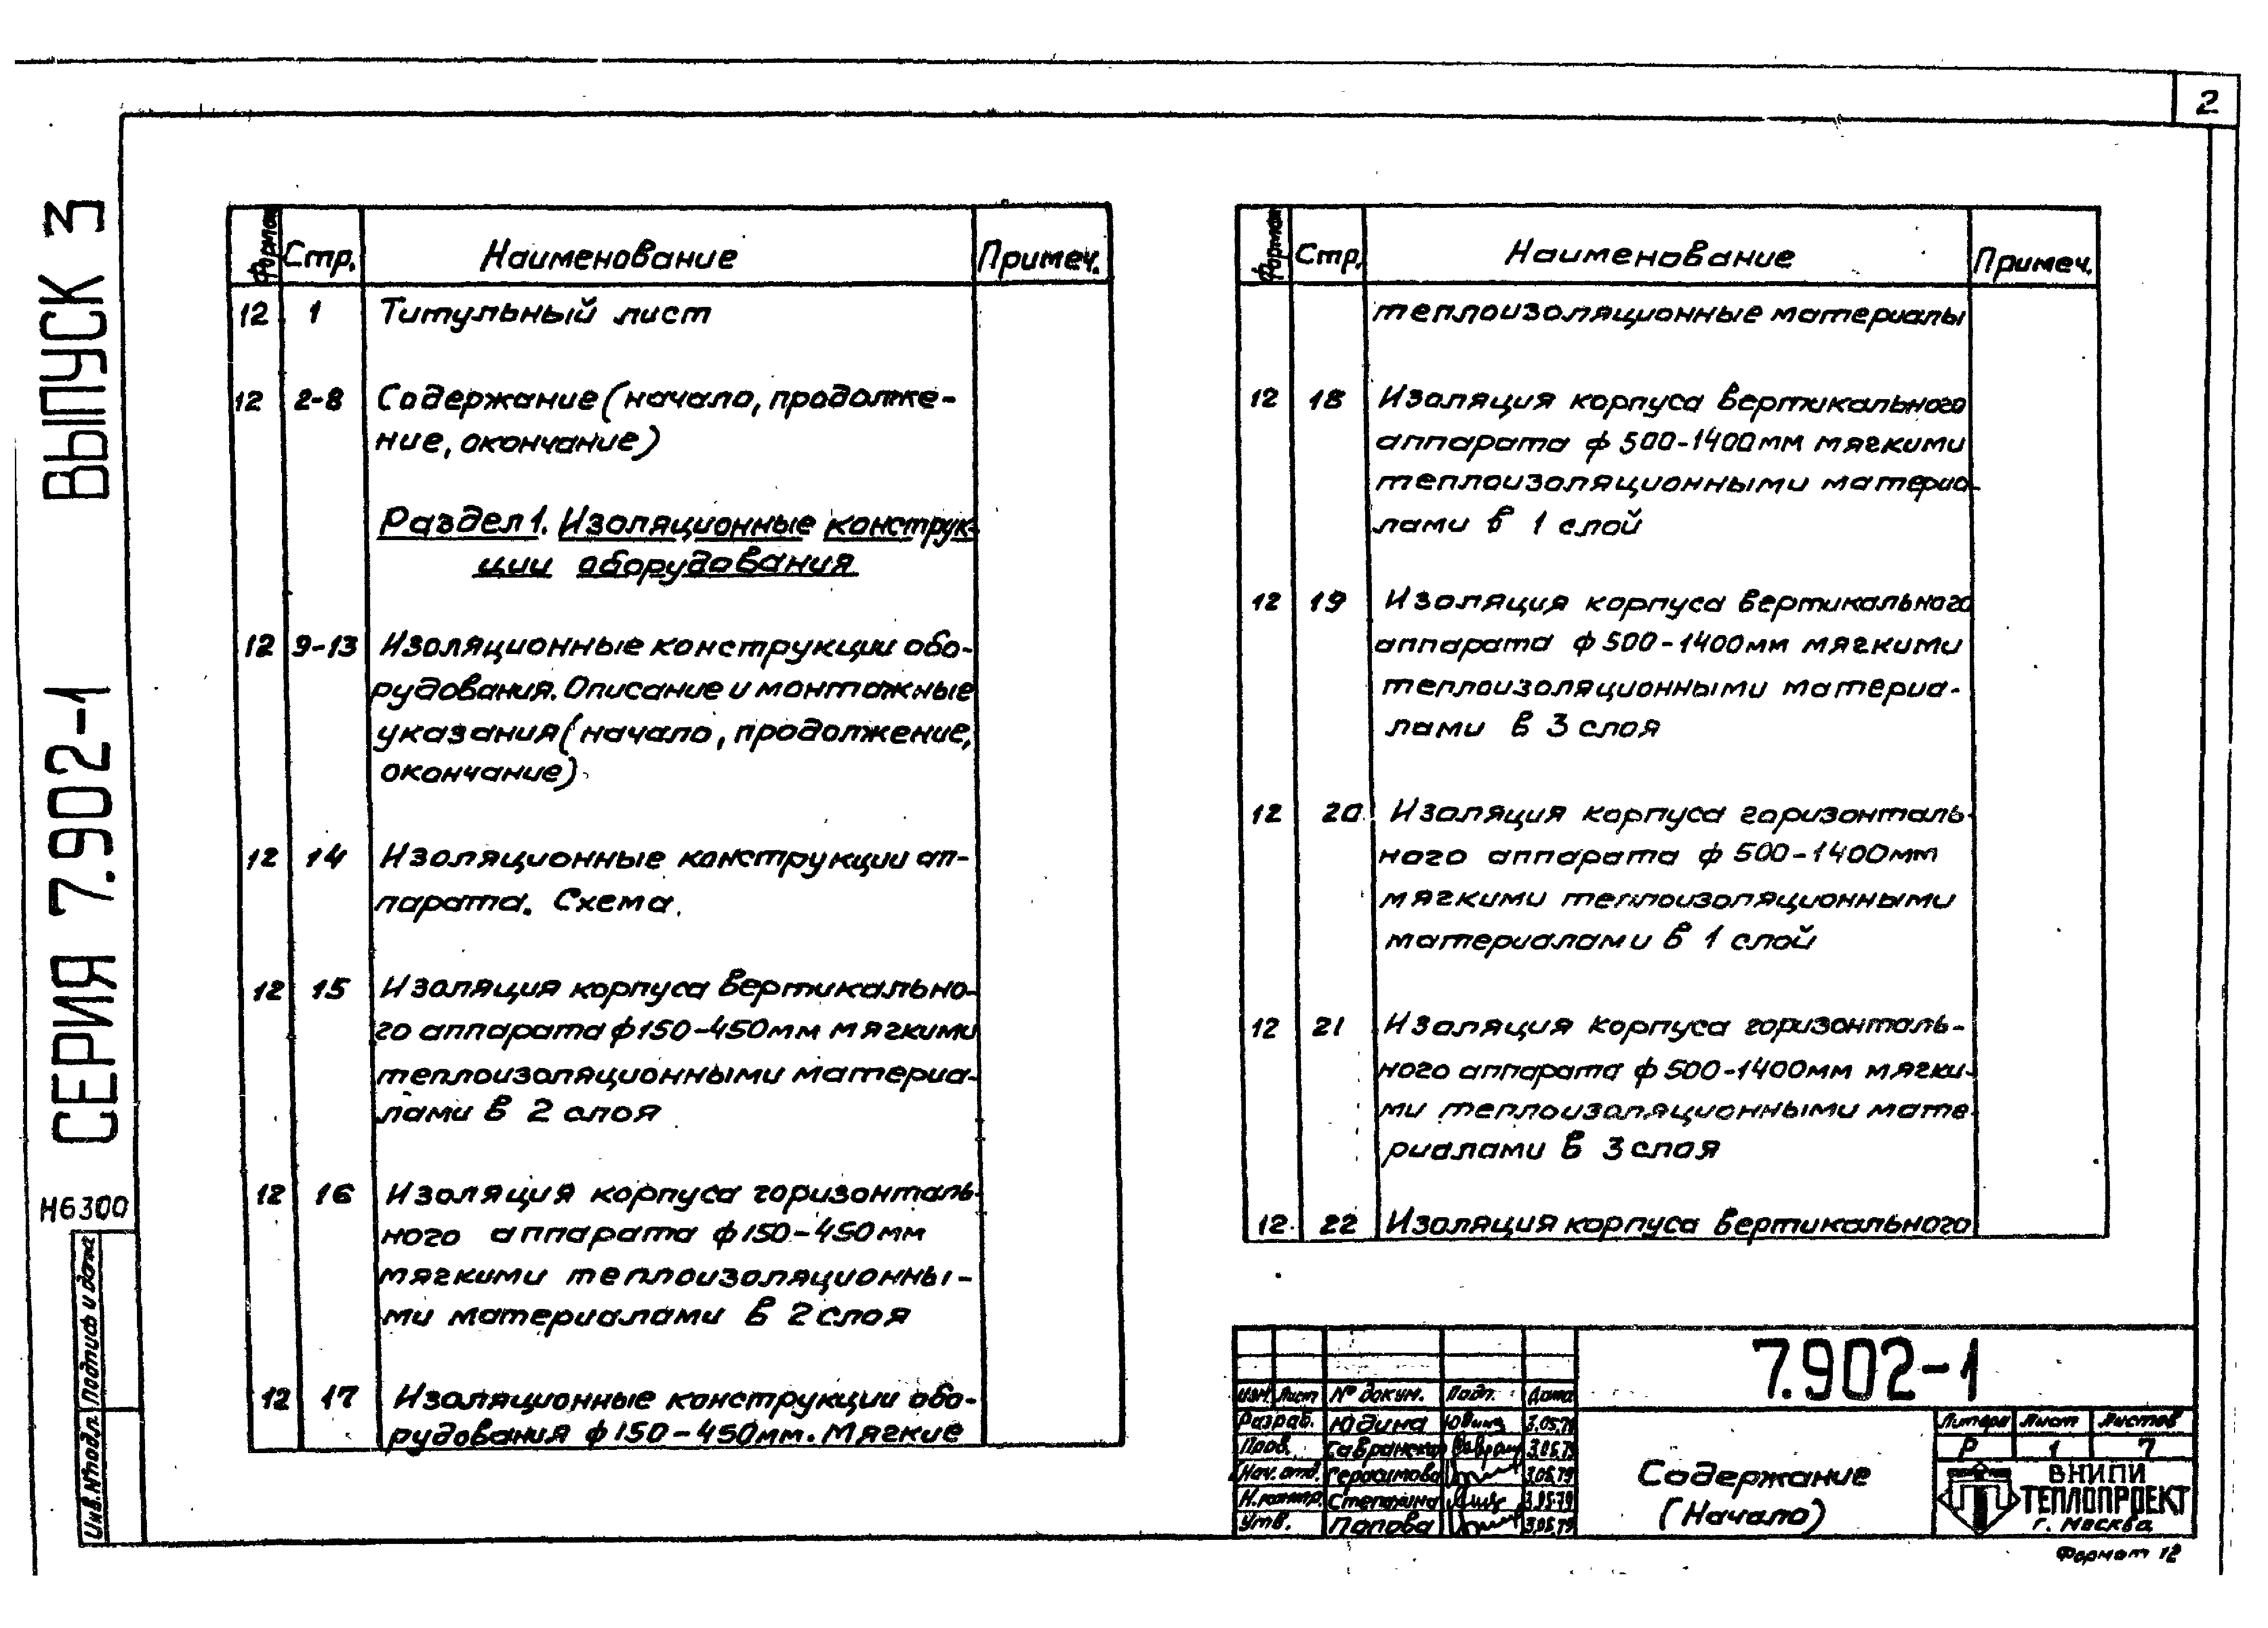 2
СЕРИЯ 7.902-1 ВЫПУСК 3
Н6300
Инв.№подл. Подпись и дата
Формат Стр. Наименование Примеч.
12 1 Титульный лист
12 2-8 Содержание (начало, продолже-
ние, окончание)
Раздел 1. Изоляционные конструк-
ции оборудования
12 9-13 Изоляционные конструкции обо-
рудования. Описание и монтажные
указания (начало, продолжение,
окончание)
12 14 Изоляционные конструкции ап-
парата. Схема.
12 15 Изоляция корпуса вертикально-
го аппарата ф 150-450мм мягкими
теплоизоляционными материа-
лами в 2 слоя
12 16 Изоляция корпуса горизонталь-
ного аппарата ф 150-450мм
мягкими теплоизоляционны-
ми материалами в 2 слоя
12 17 Изоляционные конструкции обо-
рудования ф 150-450мм. Мягкие
Формат Стр. Наименование Примеч.
теплоизоляционные материалы
12 18 Изоляция корпуса вертикального
аппарата ф 500-1400мм мягкими
теплоизоляционными материа-
лами в 1 слой
12 19 Изоляция корпуса вертикального
аппарата ф 500-1400мм мягкими
теплоизоляционными материа-
лами в 3 слоя
12 20 Изоляция корпуса горизонталь-
ного аппарата ф 500-1400мм
мягкими теплоизоляционными
материалами в 1 слой
12 21 Изоляция корпуса горизонталь-
ного аппарата ф 500-1400мм мягки-
ми теплоизоляционными мате-
риалами в 3 слоя
12 22 Изоляция корпуса вертикального
7.902-1
Изм Лист № докум. Подп. Дата
Разраб. Юдина Юдина 3.05.79
Пров. Гавранская 3.05.79
Нач. отд. Герасимова 3.05.79
Н.контр. Степанина 3.05.79
Утв. Попова 3.05.79
Содержание
(Начало)
Литера Лист Листов
Р 1 7
ВНИПИ
ТЕПЛОПРОЕКТ
г. Москва
Формат 12